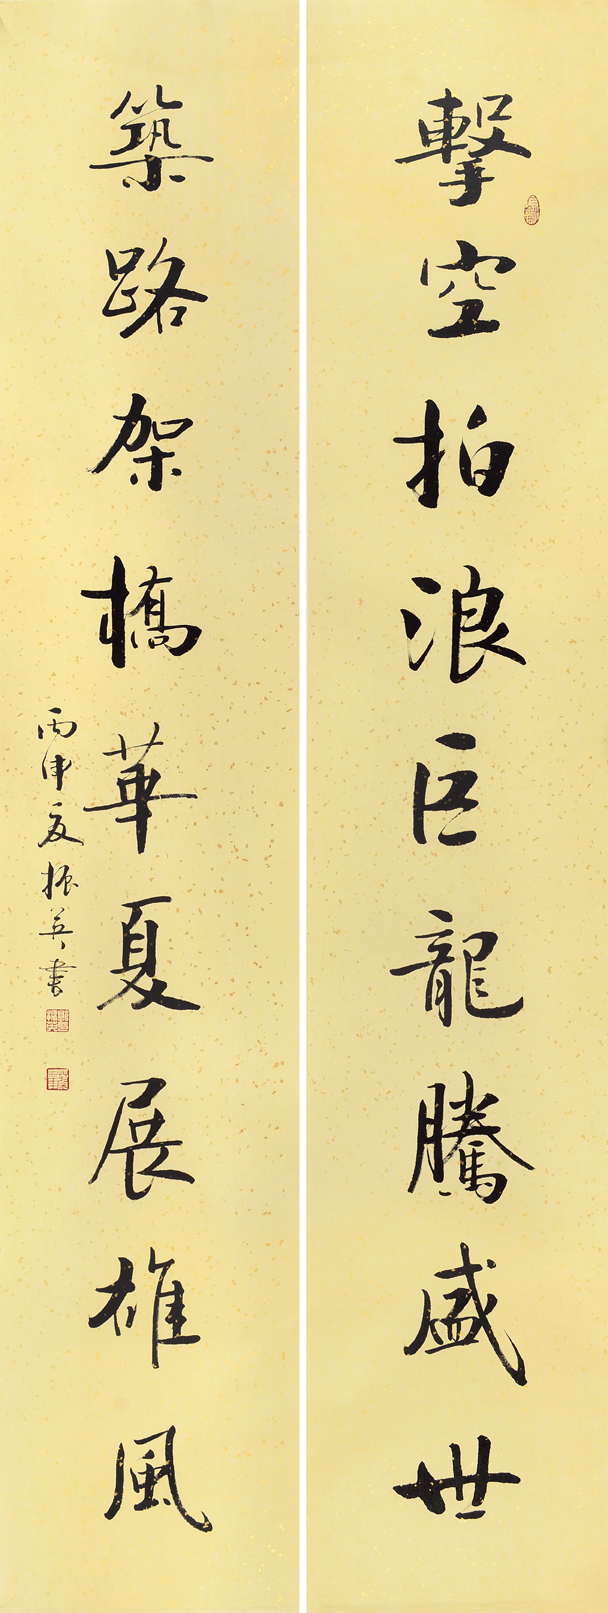 擊空拍浪巨龍騰盛世
築路架橋華夏展雄風
丙申夏振英書